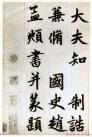 大夫知　制誥
兼脩　國史趙
孟頫書并篆額